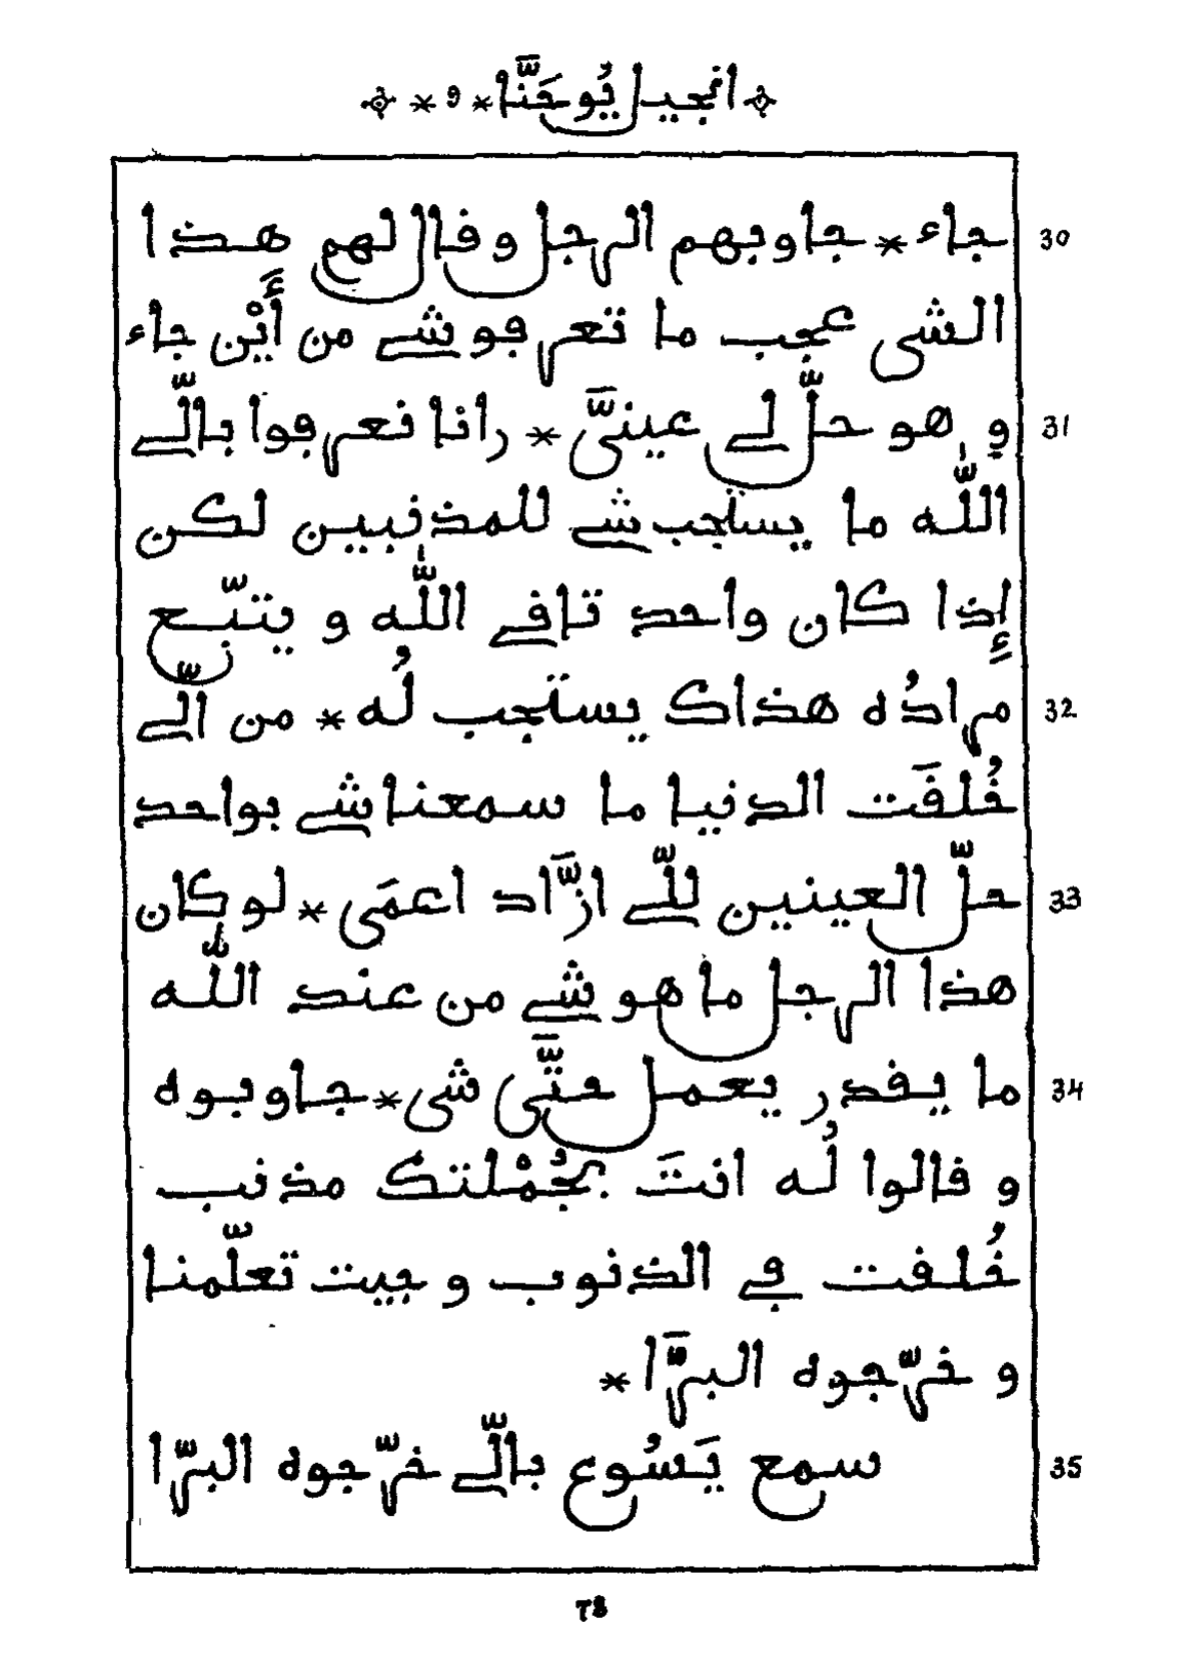 انجيل يُوحَنَّا * 9 *
30 جاء * جاوبهم الرجل وقال لهم هذا
الشي عجب ما تعرفوشي من أَيْن جاء
31 و هو حلّ لي عينيَّ * رانا نعرفوا بالّي
اللّٰه ما يستجبشي للمذنبين لكن
إِذا كان واحد تاقي اللّٰه و يتبّع
32 مرادُه هذاك يستجب لُه * من الّي
خُلقَت الدنيا ما سمعناشي بواحد
33 حلّ العينين للّي ازَّاد اعمَى * لوكان
هذا الرجل ما هوشي من عند اللّٰه
34 ما يقدر يعمل حتَّى شي * جاوبوه
و قالوا لُه انتَ بجُمْلتك مذنب
خُلقت في الذنوب و جيت تعلّمنا
و خرّجوه البرَّا *
35 سمع يَسُوع بالّي خرّجوه البرّا
78